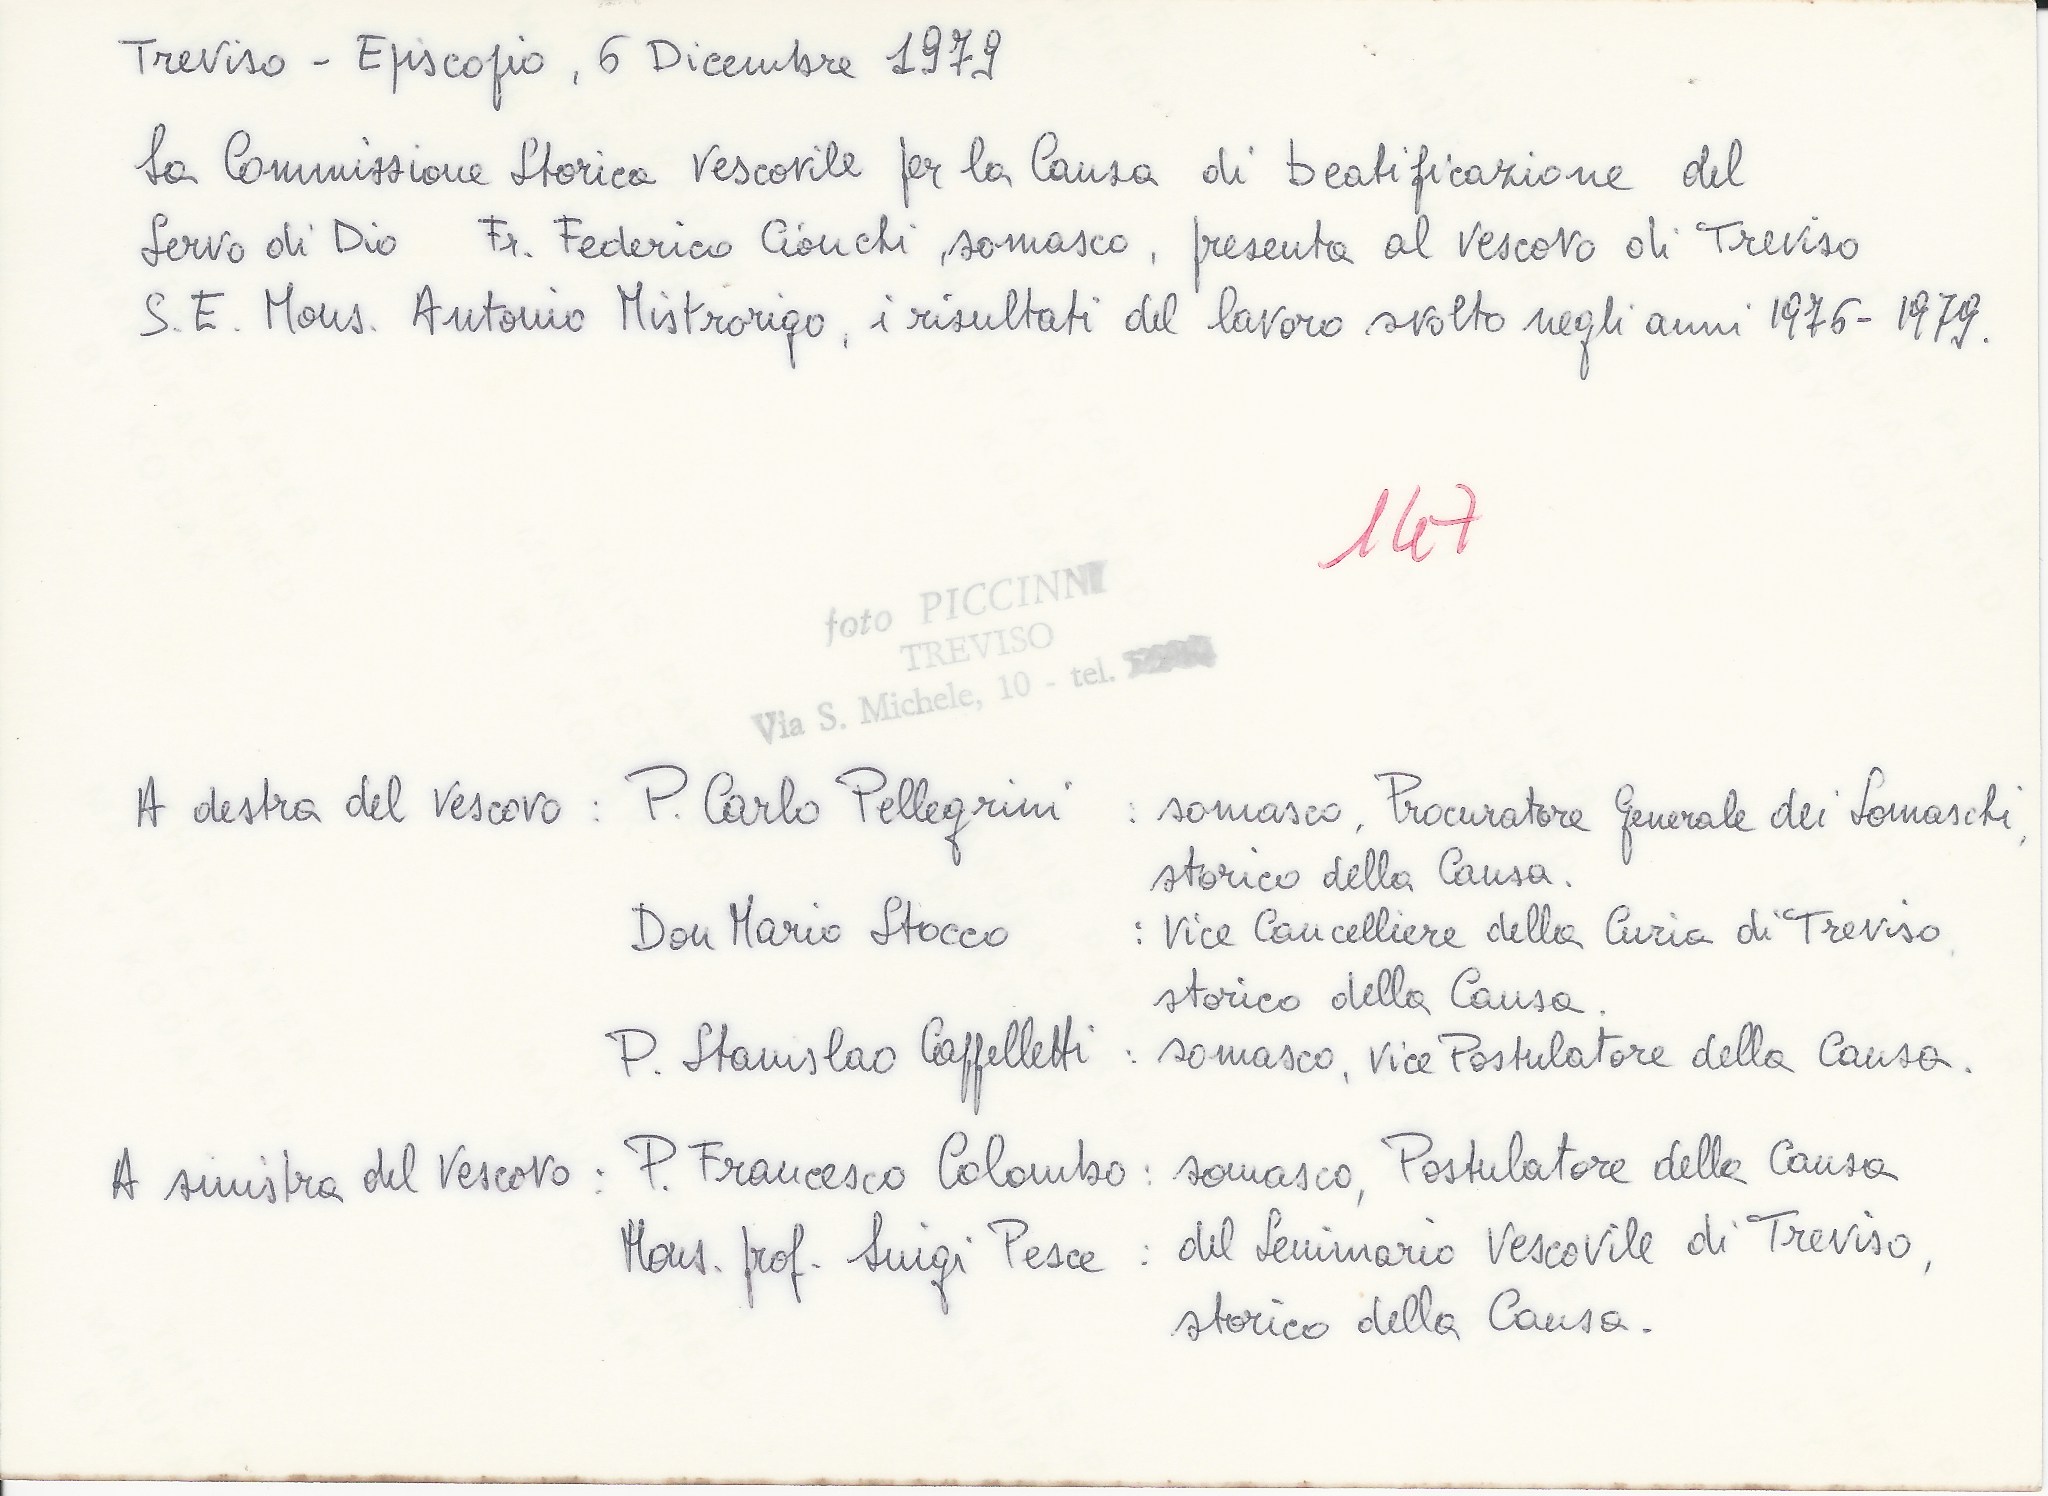 Treviso - Episcopio, 6 Dicembre 1979
La Commissione Storica Vescovile per la Causa di beatificazione del
Servo di Dio Fr. Federico Cionchi, somasco, presenta al Vescovo di Treviso
S.E. Mons. Antonio Mistrorigo, i risultati del lavoro svolto negli anni 1976-1979.
147
foto PICCINNI
TREVISO
Via S. Michele, 10 - tel.
A destra del Vescovo : P. Carlo Pellegrini : somasco, Procuratore Generale dei Somaschi,
storico della Causa.
Don Mario Stocco : Vice Cancelliere della Curia di Treviso,
storico della Causa.
P. Stanislao Cappelletti : somasco, Vice Postulatore della Causa.
A sinistra del Vescovo : P. Francesco Colombo : somasco, Postulatore della Causa
Mons. prof. Luigi Pesce : del Seminario Vescovile di Treviso,
storico della Causa.